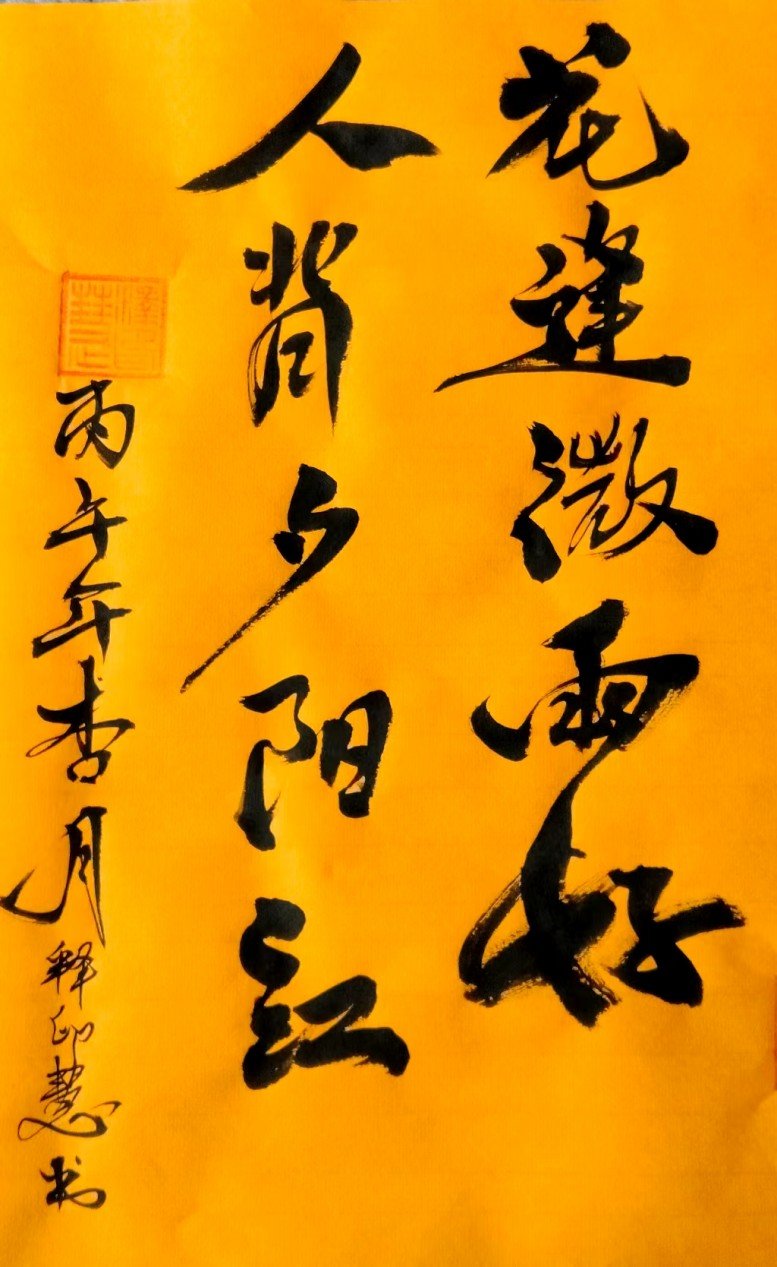 花逢微雨好
人背夕阳红
丙午年杏月释印慧书